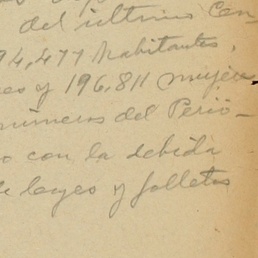 del último Cen-
94,477 habitantes,
es y 196,811 mujeres
números del Perió-
o con la debida
de leyes y folletos